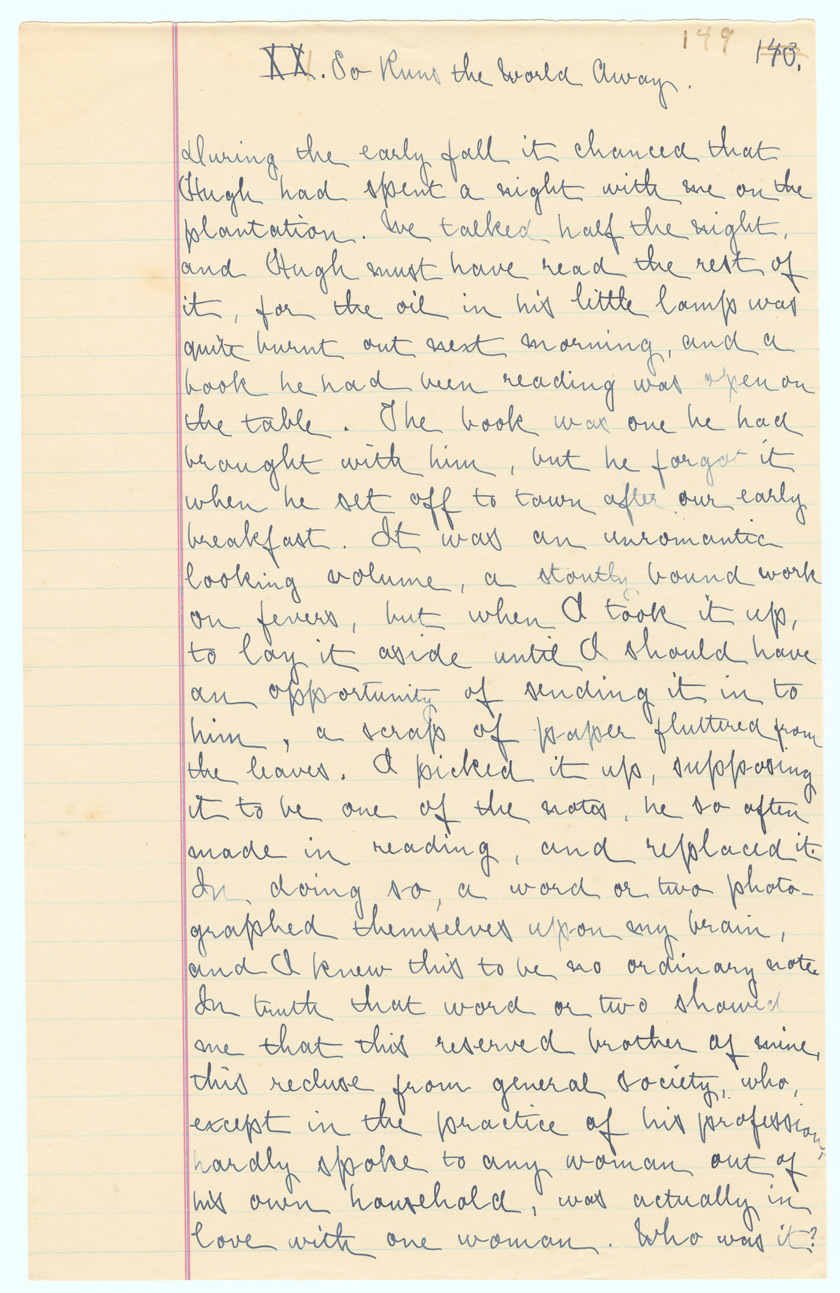 149 143.
XX. So Runs the World Away.
During the early fall it chanced that
Hugh had spent a night with me on the
plantation. We talked half the night,
and Hugh must have read the rest of
it, for the oil in his little lamp was
quite burnt out next morning, and a
book he had been reading was open on
the table. The book was one he had
brought with him, but he forgot it
when he set off to town after our early
breakfast. It was an unromantic
looking volume, a stoutly bound work
on fevers, but when I took it up,
to lay it aside until I should have
an opportunity of sending it in to
him, a scrap of paper fluttered from
the leaves. I picked it up, supposing
it to be one of the notes, he so often
made in reading, and replaced it.
In doing so, a word or two photo-
graphed themselves upon my brain,
and I knew this to be no ordinary note.
In truth that word or two showed
me that this reserved brother of mine,
this recluse from general society, who,
except in the practice of his profession,
hardly spoke to any woman out of
his own household, was actually in
love with one woman. Who was it?